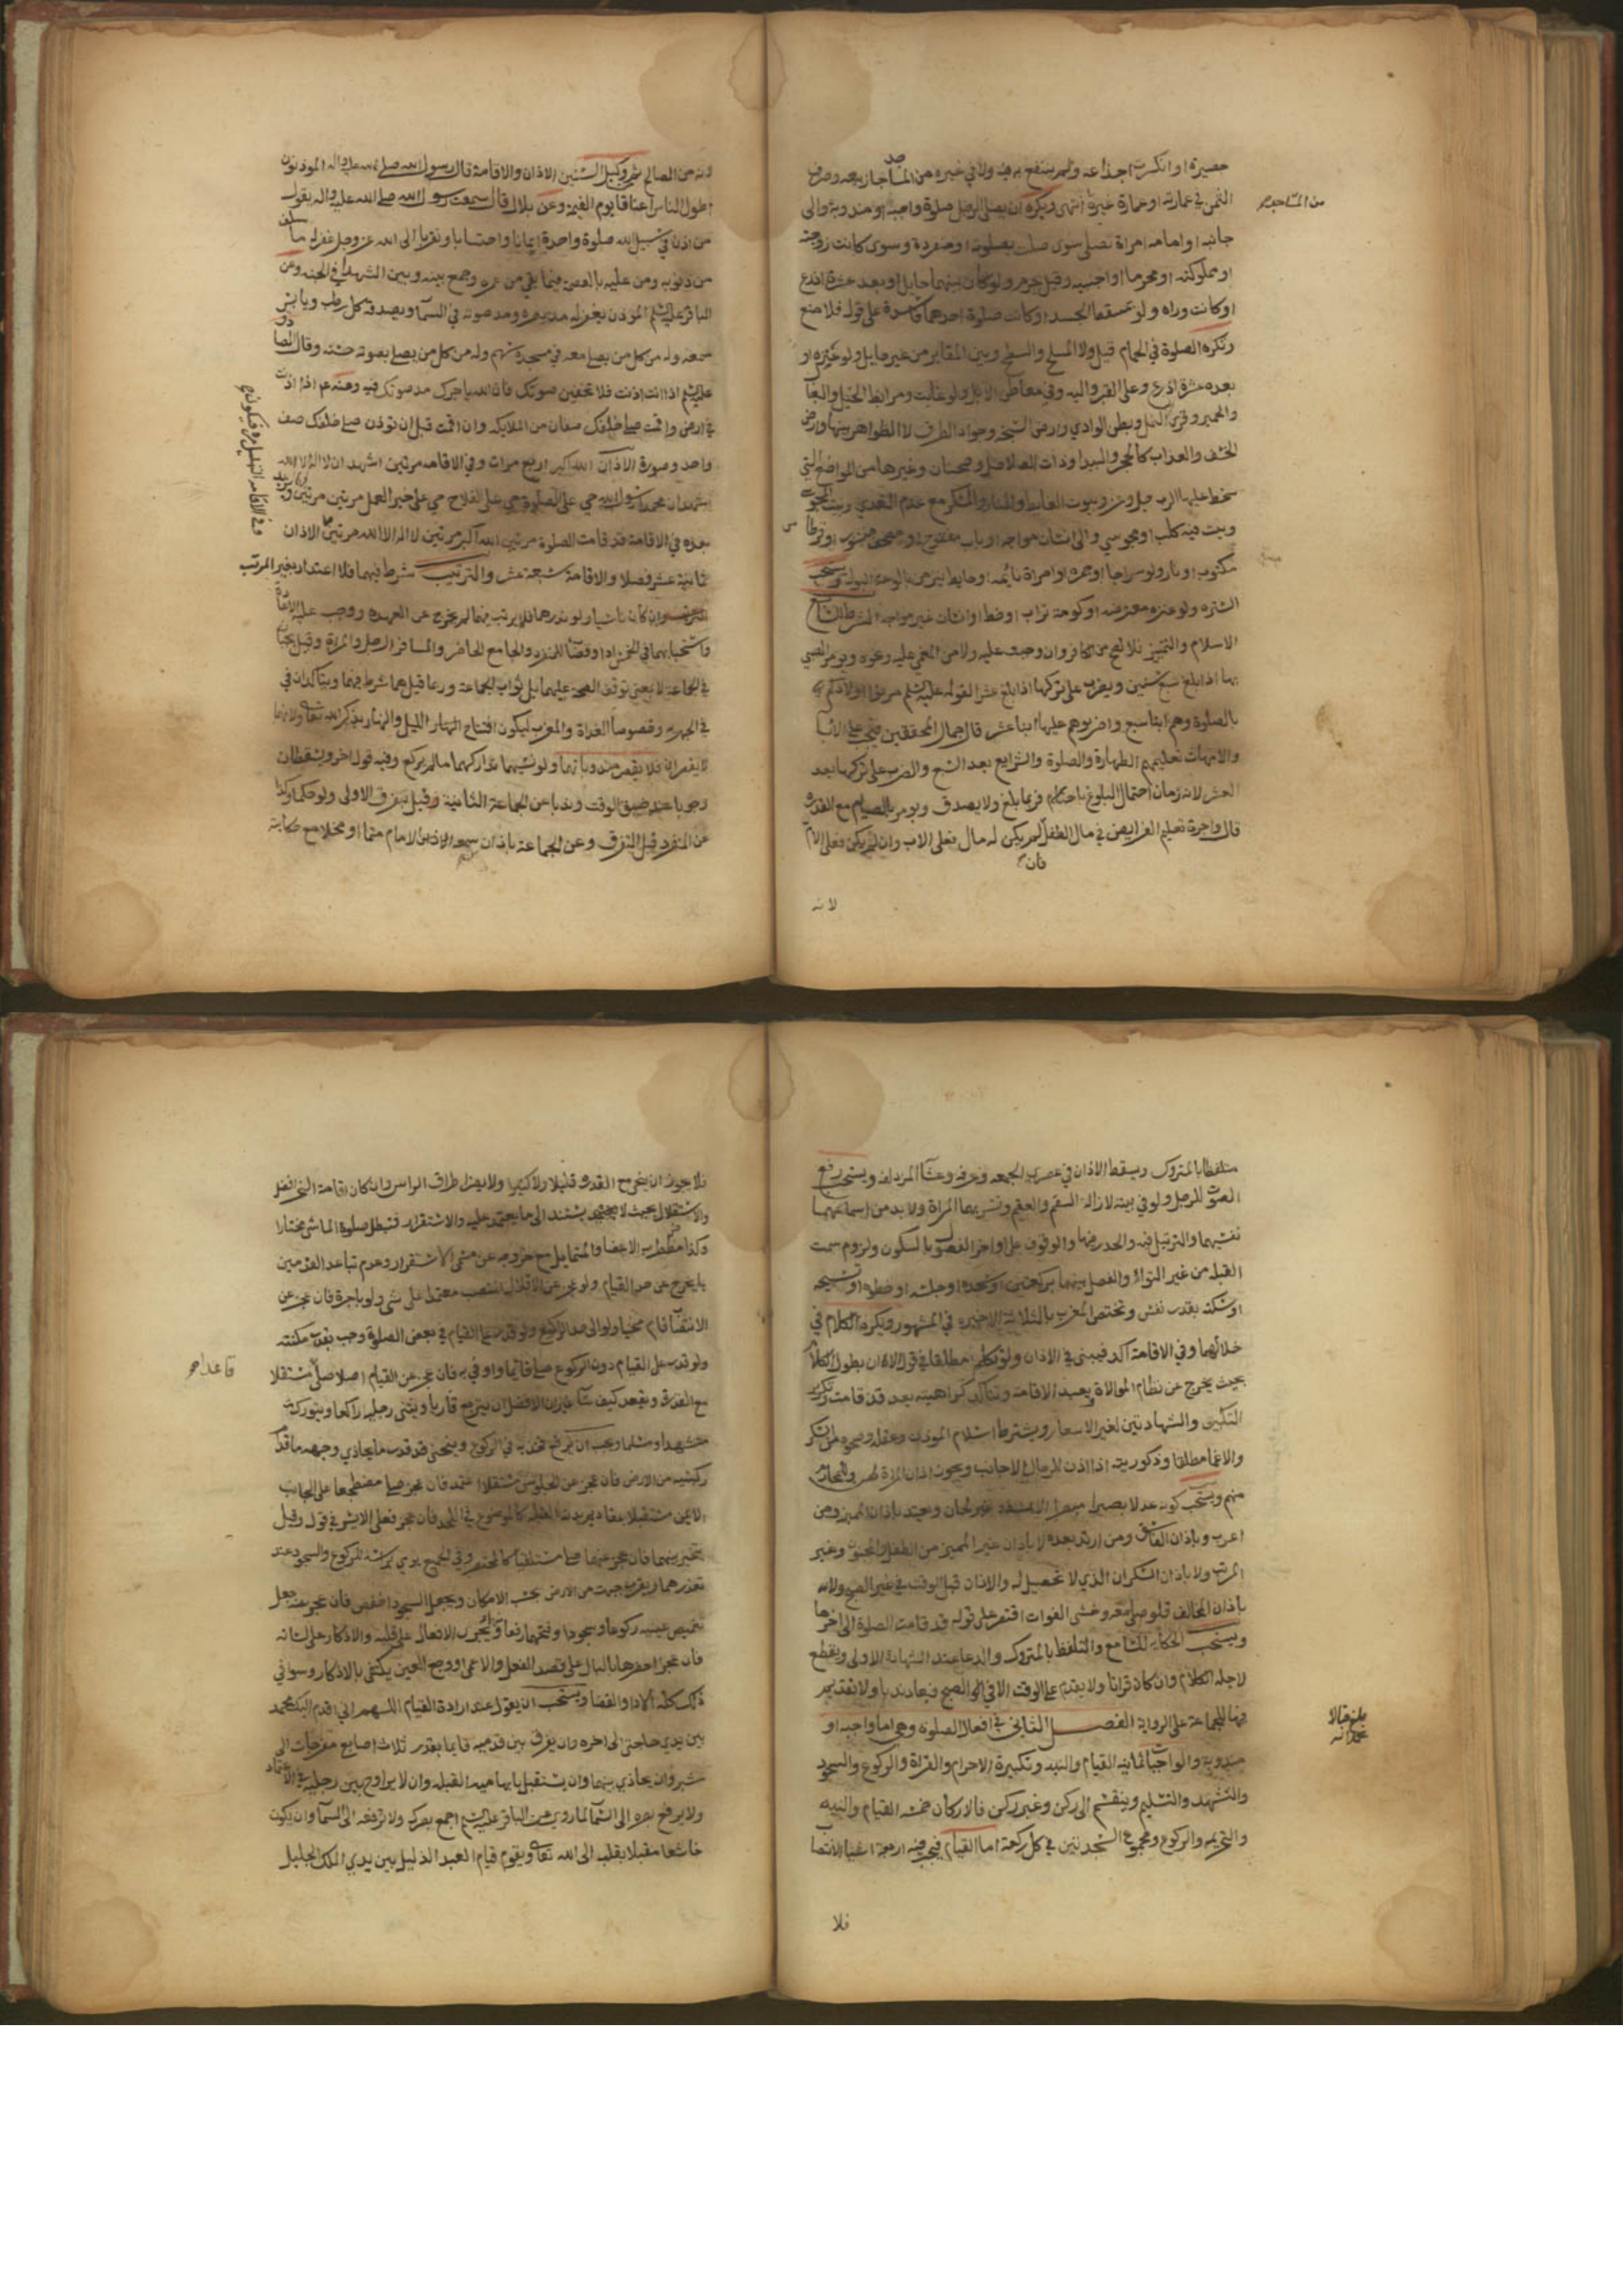 حصيره او انكسرت اجذاعه ولم ينتفع به فيه ولا في غيره من المساجد جاز بيعه وصرف
من المساجد
الثمن في عمارته او عمارة غيره انتهى ويكره ان يصلي الرجل صلوة واجبة او مندوبة والى
جانبه او امامه امراة تصلي سوى صلت بصلوته او منفردة وسوى كانت زوجته
او مملوكته او محرما او اجنبيه وقيل يحرم ولو كان بينهما حايل او بعد عشرة اذرع
او كانت وراه ولو بمسقط الجسد او كانت صلوة احدهما فاسدة على قوله فلا منع
وتكره الصلوة في الحمام قيل ولا المسلخ والسطح وبين المقابر من غير حايل ولو عنزه او
بعد عشرة اذرع وعلى القبر واليه وفي معاطن الابل ولو غابت ومرابط الخيل والبغال
والحمير وقرى النمل وبطن الوادي وارض السبخه وجواد الطرق لا الظواهر بينها وارض
الخسف والعذاب كالحجر والبيدا وذات الصلاصل وضجنان وغيرها من المواضع التي
سخط عليها الرب جل وعز وبيوت الغايط والنار والمسكر مع عدم التعدي وبيت المجوس
وبيت فيه كلب او مجوسي والى انسان مواجه او باب مفتوح او مصحف منشور او قرطاس
مكتوب او نار ولو سراجا او جمره او امراة نايمه او حايط ينز من بالوعة البول ويستحب
السترة ولو عنزه معترضه او كومة تراب او خط او انسان غير مواجه الشرط السابع
الاسلام والتمييز فلا تصح من الكافر وان وجبت عليه ولا من المغمى عليه ونحوه ويومر الصبي
بها اذا بلغ سبع سنين ويضرب على تركها اذا بلغ عشرا لقوله عليه السلم مروا اولادكم
بالصلوة وهم ابنا سبع واضربوهم عليها ابنا عشر قال جمال المحققين يجب على الابا
والامهات تعليمهم الطهارة والصلوة والشرايع بعد السبع والضرب على تركها بعد
العشر لانه زمان احتمال البلوغ باحتلام فربما بلغ ولا يصدق ويومر بالصيام مع القدره
قال واجرة تعليم الفرايض في مال الطفل فان لم يكن له مال فعلى الاب وان لم يكن فعلى الام
لانه
لانه من المصالح وتكميل السنين الاذان والاقامة قال رسول الله صلى الله عليه واله الموذنون
اطول الناس اعناقا يوم القيمة وعن بلال قال سمعت رسول الله صلى الله عليه واله يقول
من اذن في سبيل الله صلوة واحدة ايمانا واحتسابا وتقربا الى الله عز وجل غفر له ما سلف
من ذنوبه ومن عليه بالعصمة فيما بقي من عمره وجمع بينه وبين الشهدا في الجنه وعن
الباقر عليه السلم الموذن يغفر له مد بصره ومد صوته في السما ويصدقه كل رطب ويابس
سمعه وله من كل من يصلي معه في مسجده سهم وله من كل من يصلي بصوته حسنه وقال الصادق
عليه السلم اذا اذنت فلا تخفين صوتك فان الله ياجرك مد صوتك فيه وعنه عم اذا اذنت
في ارض واقمت صلى خلفك صفان من الملايكه وان اقمت قبل ان توذن صلى خلفك صف
واحد وصورة الاذان الله اكبر اربع مرات وفي الاقامه مرتين اشهد ان لا اله الا الله
اشهد ان محمدا رسول الله حي على الصلوة حي على الفلاح حي على خير العمل مرتين مرتين ويزيد
بعده في الاقامة قد قامت الصلوة مرتين الله اكبر مرتين لا اله الا الله مرتين الاذان
ثمانية عشر فصلا والاقامة سبعة عشر والترتيب شرط فيهما فلا اعتداد بغير المرتب
وان كان ناسيا ولو نذرهما فلم يرتب فيهما لم يخرج عن العهده ووجب عليه الاعادة
واستحبابهما في الخمس ادا وقضا للمنفرد والجامع الحاضر والمسافر الرجل والمراة وقيل يجبان
في الجماعة لا بمعنى توقف الصحة عليهما بل ثواب الجماعة وربما قيل هما شرط فيها ويتاكدان في
في الجهريه وخصوصا الغداة والمغرب ليكون افتتاح النهار والليل والنهار بذكر الله تعالى ولانهما
لا يقصران فلا يقصر مندوباتهما ولو نسيهما تداركهما ما لم يركع وفيه قول اخر ويسقطان
وجوبا عند ضيق الوقت وندبا عن الجماعة الثانية وقيل تفرق الاولى ولو حكما وكذا
عن المنفرد قبل التفرق وعن الجماعة باذان سمعه الامام متما او مخلا مع حكايته
متلفظا بالمتروك ويسقط الاذان في عصري الجمعه وعرفه وعشا المزدلفه ويستحب رفع
الصوت للرجل ولو في بيته لازالة السقم والعقم وتسر بهما المراة ولا بد من اسماعهما
نفسهما والترتيل فيه والحدر فيها والوقوف على اواخر الفصول بالسكون ولزوم سمت
القبله من غير التواء والفصل بينهما بركعتين او سجده او جلسه او خطوه او تسبيحه
او سكتة بقدر نفس وتختص المغرب بالثلاثة الاخيره في المشهور ويكره الكلام في
خلالهما وفي الاقامة اكد فيبني في الاذان ولو تكلم مطلقا في قول الا ان يطول الكلام
بحيث يخرج عن نظام الموالاة ويعيد الاقامة وتتاكد كراهيته بعد قد قامت وتكرير
التكبير والشهادتين لغير الاشعار ويشترط اسلام الموذن وعقله وصحوه من السكر
والاغما مطلقا وذكوريته اذا اذن للرجال الاجانب ويجوز اذان المراة لهن والمحارم
منهم ويستحب كونه عدلا بصيرا مبصرا غير لحان ويعتد باذان المميز ومن
اعرب وباذان الفاسق ومن ارتد بعده لا باذان غير المميز من الطفل والمجنون وغير
المرتب ولا باذان السكران الذي لا تحصيل له والاذان قبل الوقت في غير الصبح ولا
باذان المخالف فلو صلى معه وخشي الفوات اقتصر على قوله قد قامت الصلوة الى اخرها
ويستحب الحكايه للسامع والتلفظ بالمتروك والدعا عند الشهادة الاولى ويقطع
لاجله الكلام وان كان قرانا ولا يقدم على الوقت الا في الصبح فيعاد ندبا ولا تقديم
فيها للجماعة على الرواية الفصل الثاني في افعال الصلوة وهي اما واجبه او
مندوبه والواجبات ثمانيه القيام والنيه وتكبيرة الاحرام والقراة والركوع والسجود
والتشهد والتسليم وينقسم الى ركن وغير ركن فالاركان خمسه القيام والنيه
والتحريمه والركوع ومجموع السجدتين في كل ركعة اما القيام فيجب فيه اربعة اشيا الانتصاب
فلا
فلا يجوز ان ينحني مع القدرة قليلا ولا كثيرا ولا يضر اطراق الراس وان كان اقامة النحر افضل
والاستقلال بحيث لا يستند الى ما يعتمد عليه والاستقرار فتبطل صلوة الماشي مختارا
وكذا مضطرب الاعضا والمتمايل مع خروجه عن مسمى الاستقرار وعدم تباعد القدمين
بما يخرج عن حد القيام ولو عجز عن الاقلال انتصب معتمدا على شي ولو باجرة فان عجز عن
الانتصاب قام منحنيا ولو الى حد الركوع ولو قدر على القيام في بعض الصلوة وجب بقدر مكنته
ولو قدر على القيام دون الركوع صلى قايما واومى به فان عجز عن القيام اصلا صلى مستقلا
قاعدا
مع القدرة ويقعد كيف شا غير ان الافضل ان يتربع قاريا ويثني رجليه راكعا ويتورك
متشهدا ومسلما ويجب ان يرفع فخذيه في الركوع وينحني قدر ما يحاذي وجهه ما قدام
ركبتيه من الارض فان عجز عن الجلوس مستقلا اعتمد فان عجز صلى مضطجعا على الجانب
الايمن مستقبلا بمقاديم بدنه القبله كالموضوع في اللحد فان عجز فعلى الايسر في قول وقيل
يتخير بينهما فان عجز عنهما صلى مستلقيا كالمحتضر وفي الجميع يومي براسه للركوع والسجود عند
تعذرهما ويقرب جبهته من الارض بحسب الامكان ويجعل السجود اخفض فان عجز عنه جعل
تغميض عينيه ركوعا وسجودا وفتحهما رفعا ويجري الافعال على قلبه والاذكار على لسانه
فان عجز احضرها بالبال على قصد الفعل والاعمى او وجع العين يكتفي بالاذكار وسوا في
ذلك كله الادا والقضا ويستحب ان يقول عند ارادة القيام اللهم اني اقدم اليك محمد
بين يدي حاجتي الى اخره وان يفرق بين قدميه قايما بقدر ثلاث اصابع مفرجات الى
شبر وان يحاذي بينهما وان يستقبل بابهاميه القبله وان لا يراوح بين رجليه في الاعتماد
ولا يرفع بصره الى السما لما روي عن الباقر عليه السلم اجمع بصرك ولا ترفعه الى السما وان يكون
خاشعا مقبلا بقلبه الى الله تعالى ويقوم قيام العبد الذليل بين يدي الملك الجليل